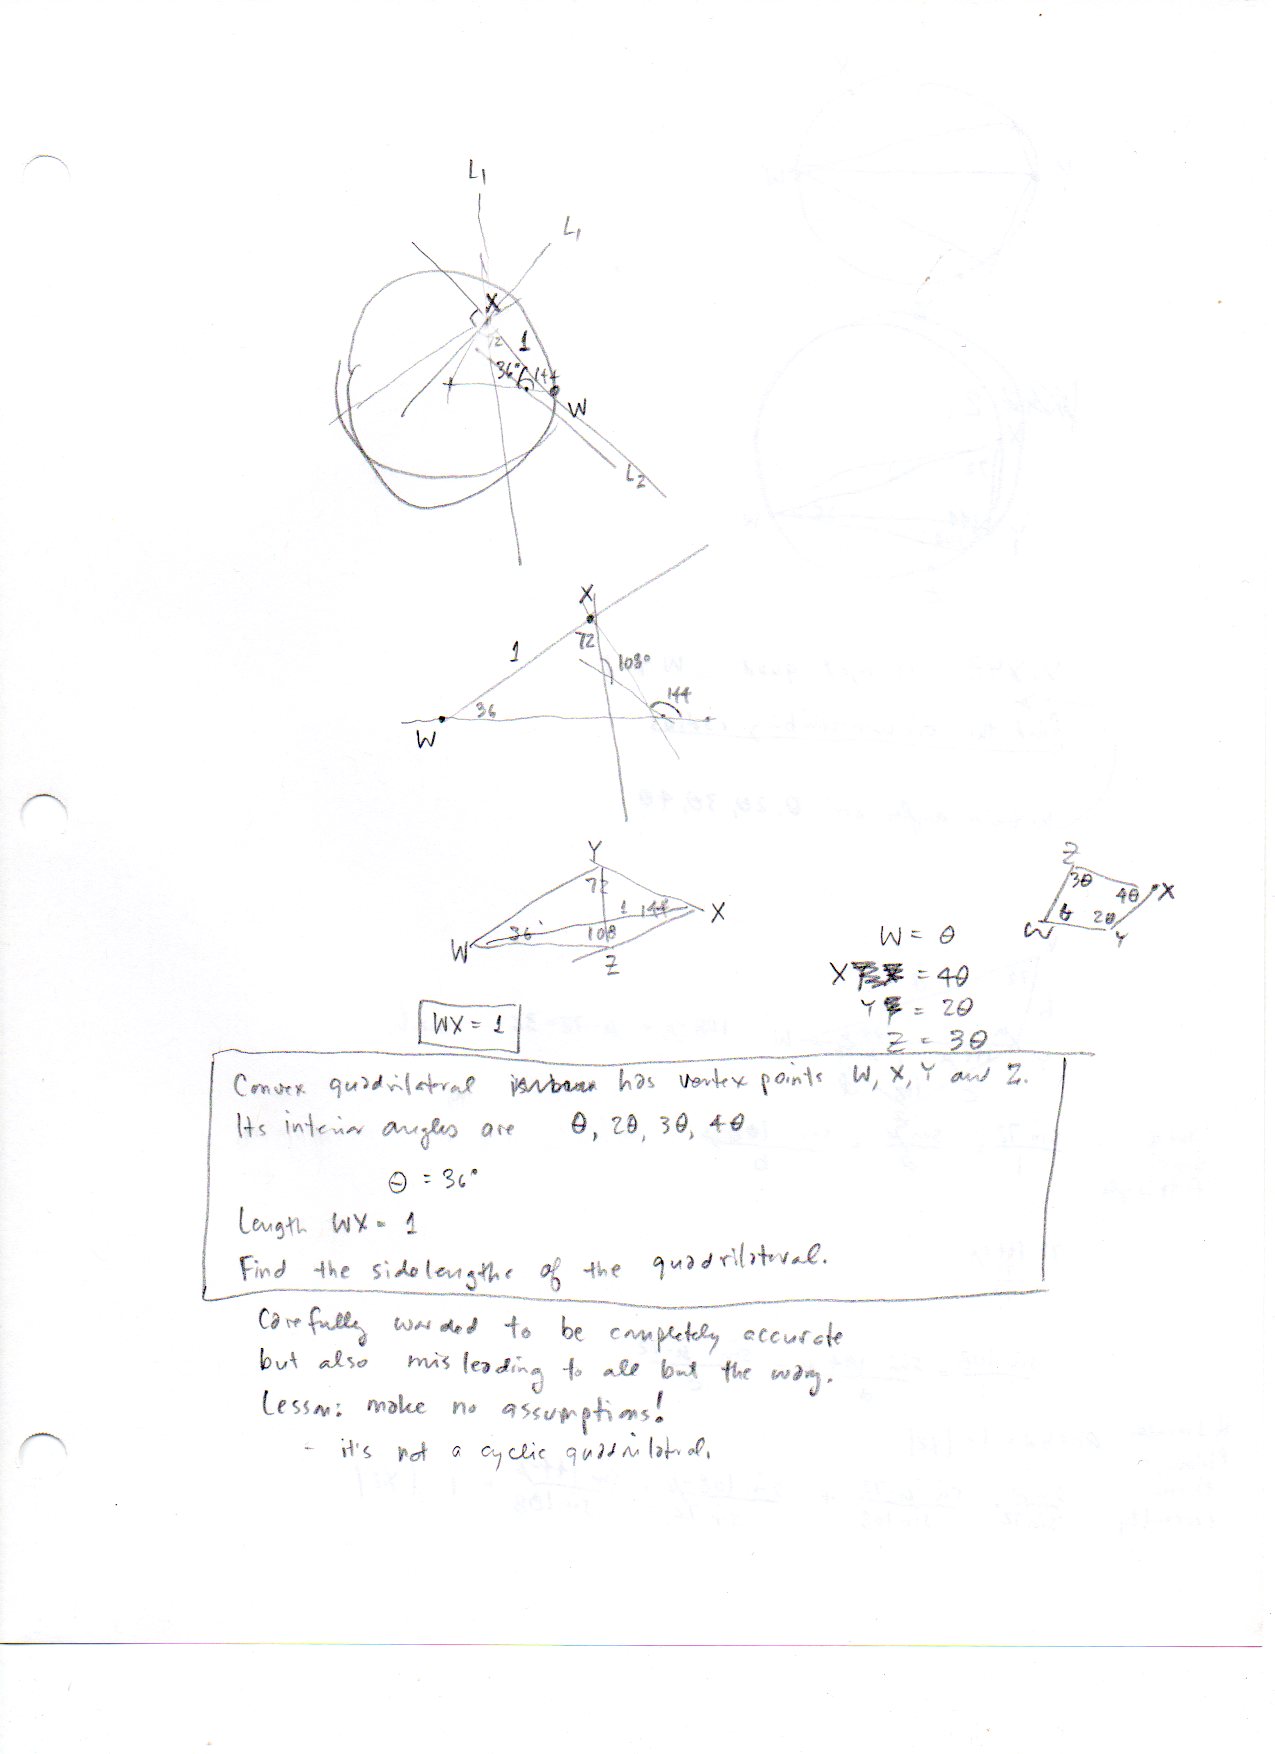 L1
L1
X
72
1
36°
144
W
L2
X
72
1
108°
144
36
W
Y
72
1
144
X
36°
108
W
Z
Z
3θ
4θ
X
θ
2θ
W
Y
W = θ
X = 4θ
Y = 2θ
Z = 3θ
WX = 1
Convex quadrilateral has vertex points W, X, Y and Z.
Its interior angles are θ, 2θ, 3θ, 4θ
θ = 36°
Length WX = 1
Find the sidelengths of the quadrilateral.
Carefully worded to be completely accurate
but also misleading to all but the wary.
Lesson: make no assumptions!
- it's not a cyclic quadrilateral.